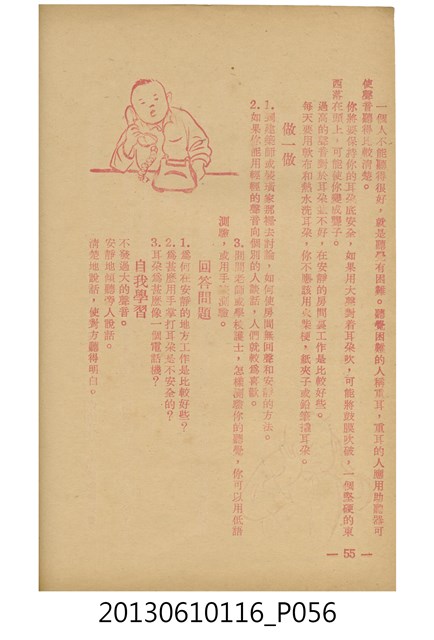 一個人不能聽得很好，就是聽覺有困難。聽覺困難的人稱重耳，重耳的人應用助聽器可
使聲音聽得比較清楚。
你將要保持你的耳朵底安全，如果用大聲對着耳朵吹，可能將鼓膜吹破，一個堅硬的東
西落在頭上，可能使你變成聾子。
過高的聲音對於耳朵並不好，在安靜的房間裏工作是比較好些。
每天要用軟布和熱水洗耳朵，你不應該用火柴梗，紙夾子或鉛筆搔耳朵。
做一做
1.到建築師或裝璜家那裡去討論，如何使房間無回聲和安靜的方法。
2.如果你應用輕輕的聲音向個別的人談話，人們就較爲喜歡。
3.詢問老師或學校護士，怎樣測驗你的聽覺，你可以用低語
測驗，或用手錶測驗。
回答問題
1.爲何在安靜的地方工作是比較好些？
2.爲甚麼用手拿打耳朵是不安全的？
3.耳朵爲甚麼像一個電話機？
自我學習
不發過大的聲音。
安靜地傾聽得人說話。
清楚地說話，使對方聽得明白。
— 55 —
20130610116_P056